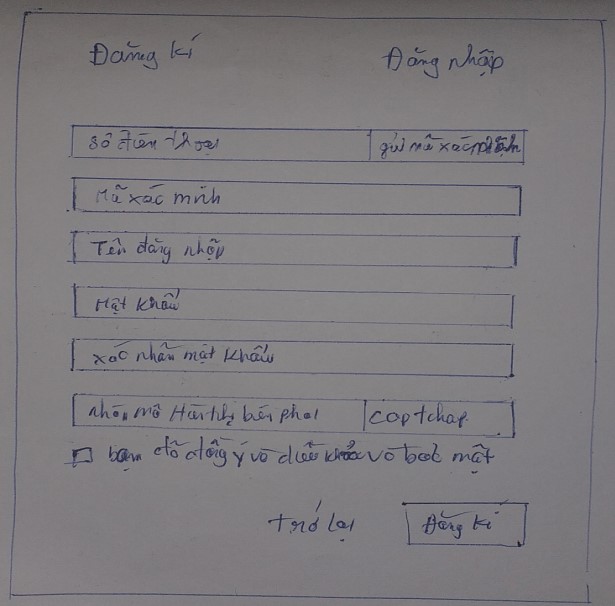 Đăng kí Đăng nhập
số điện thoại gửi mã xác nhận
Mã xác minh
Tên đăng nhập
Mật khẩu
xác nhẫn mật khẩu
nhập mã Hiển thị bên phải captchap
bạn đã đồng ý về điều khoản và bảo mật
trở lại Đăng kí